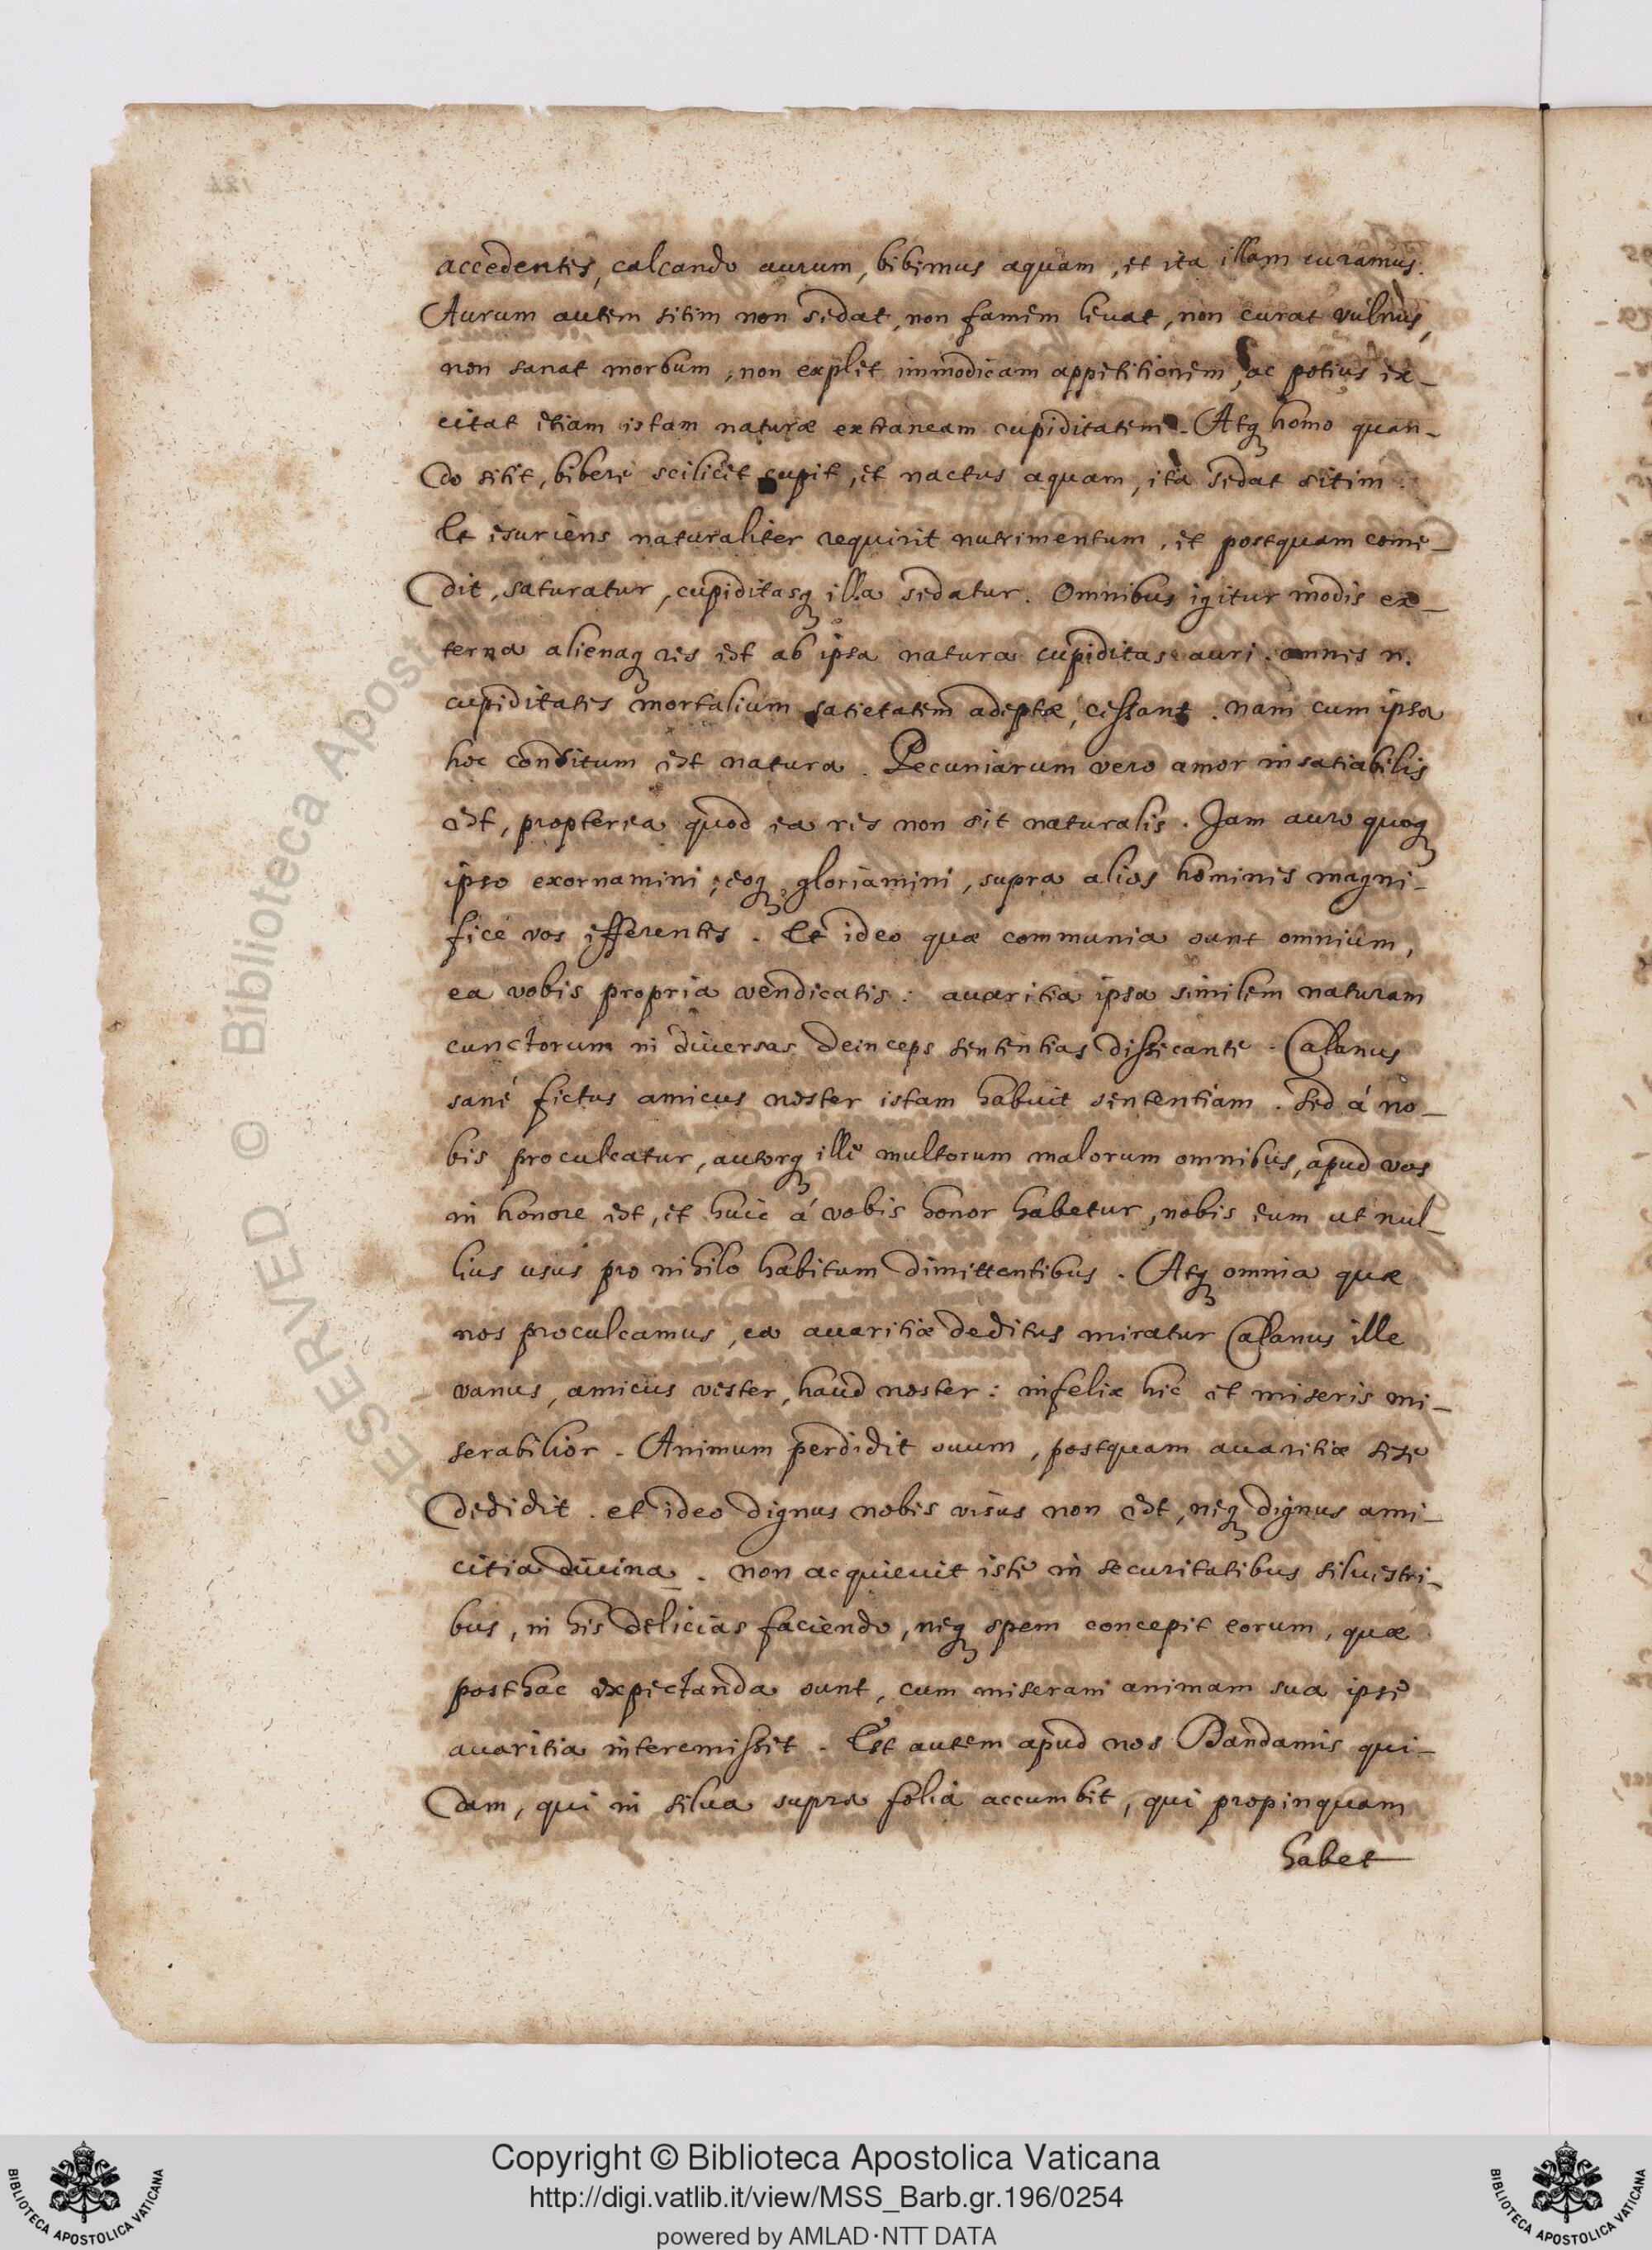 accedentes, calcando aurum, bibimus aquam, et ita illam curamus.
Aurum autem sitim non sedat, non famem levat, non curat vulnus,
non sanat morbum, non explet immodicam appetitionem, ac potius ex-
citat etiam istam naturæ extraneam cupiditatem. Atq homo quan-
do sitit, bibere scilicet cupit, et nactus aquam, ita sedat sitim.
Et esuriens naturaliter requirit nutrimentum, et postquam come-
dit, saturatur, cupiditasq illa sedatur. Omnibus igitur modis ex-
terna alienaq res est ab ipsa natura cupiditas auri. omnes n.
cupiditates mortalium satietatem adeptæ, cessant. nam cum ipsa
hoc conditum est natura. Pecuniarum vero amor insatiabilis
est, propterea quod ea res non sit naturalis. Jam auro quoq
ipso exornamini; eoq gloriamini, supra alios homines magni-
fice vos efferentes. Et ideo quæ communia sunt omnium,
ea vobis propria vendicatis: avaritia ipsa similem naturam
cunctorum in diversas deinceps sententias dissecante. Calanus
sane fictus amicus noster istam habuit sententiam. Sed á no-
bis proculcatur, autorq ille multorum malorum omnibus, apud vos
in honore est, et huic á vobis honor habetur, nobis eum ut nul-
lius usus pro nihilo habitum dimittentibus. Atq omnia quæ
nos proculcamus, ea avaritiæ deditus miratur Calanus ille
vanus, amicus vester, haud noster: infelix hic et miseris mi-
serabilior. Animum perdidit suum, postquam avaritiæ sese
dedidit. et ideo dignus nobis visus non est, neq dignus ami-
citia divina. non acquievit iste in securitatibus silvestri-
bus, in his delicias faciendo, neq spem concepit eorum, quæ
posthac expectanda sunt, cum miseram animam sua ipse
avaritia interemissit. Est autem apud nos Dandamis qui-
dam, qui in silva supra folia accumbit, qui propinquam
habet
© Biblioteca Apostolica
RESERVED
Copyright © Biblioteca Apostolica Vaticana
http://digi.vatlib.it/view/MSS_Barb.gr.196/0254
powered by AMLAD·NTT DATA
BIBLIOTECA APOSTOLICA VATICANA
BIBLIOTECA APOSTOLICA VATICANA